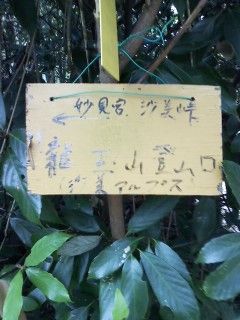 妙見宮 沙美峠
龍王山登山口
沙美アルプス